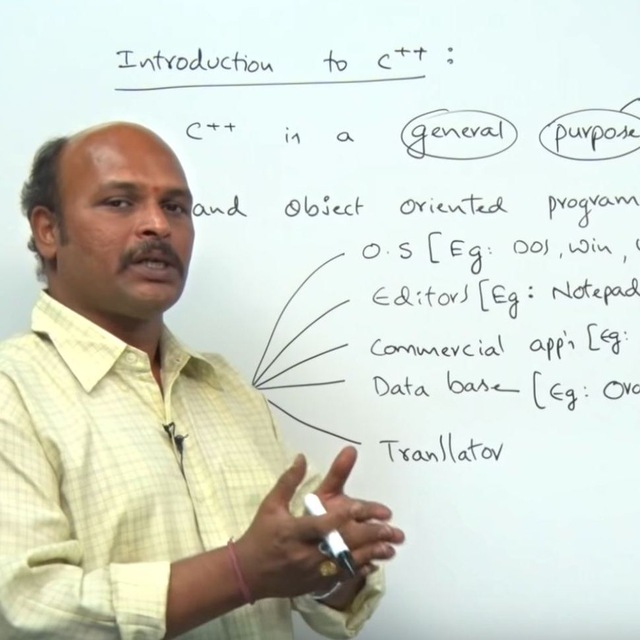 Introduction to C++ :
C++ is a general purpose
and Object oriented program
O.S [Eg: DOS, Win,
Editors [Eg: Notepad
Commercial app'n [Eg:
Data base [Eg: Ora
Translator